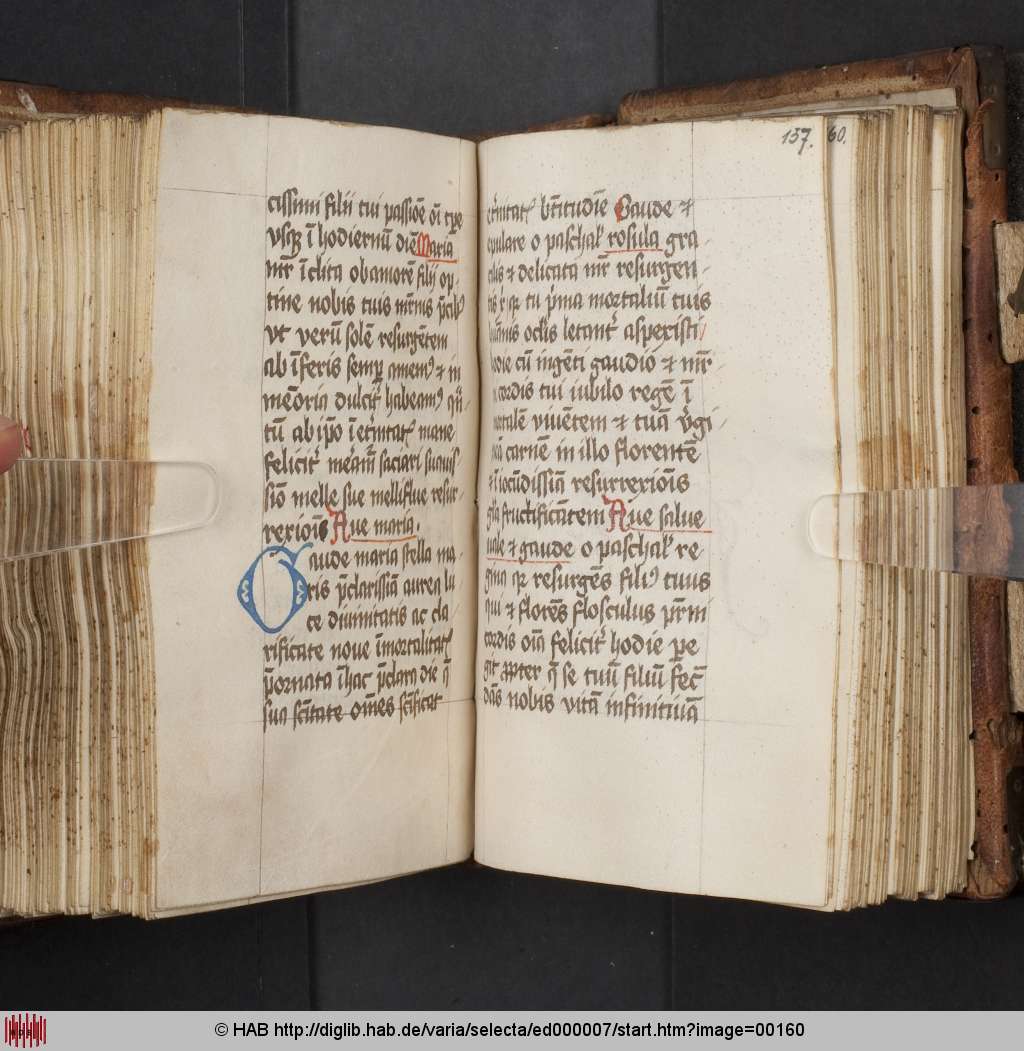 cissimi filii tui passiōe
vsq ī hodiernū diē Maria
mr̄ īclita ob amorē filij op
tine nobis tuis
vt verū solē resurgētem
ab īferis semp amemꝰ ⁊ in
mēoria dulcit̄ habeamꝰ
tū ab ipō ī et̄nitate mane
felicit̄ saciari suauis
sīo melle sue melliflue resur
rexiōis Aue maria.
Gaude maria stella ma
ris p̄clarissīa aurea lu
ce diuinitatis ac cla
rificate noue īmortalitat
p̄ornata ī hac p̄clara die q̄
sua sc̄itate om̄es sc̄ificat
157. 60.
et̄nitat bt̄itudīe Gaude ⁊
epulare o paschal rosula gra
cilis ⁊ delicata mr̄ resurgen
tu p̄ma mortaliū tuis
oclis letant̄ aspexisti
hodie cū ingēti gaudio ⁊
cordis tui iubilo regē ī
mortalē viuētem ⁊ tuā
carnē in illo florentē
iocūdissīa resurrexiōis
gl̄a fructificātem Aue salue
vale ⁊ gaude o paschal re
gina qr resurgēs filiꝰ tuus
qui ⁊ florēs flosculus
cordis oīa felicit̄ hodie pe
git ppter q̄ se tuū filiū
dās nobis vitā infinitiuā
© HAB http://diglib.hab.de/varia/selecta/ed000007/start.htm?image=00160